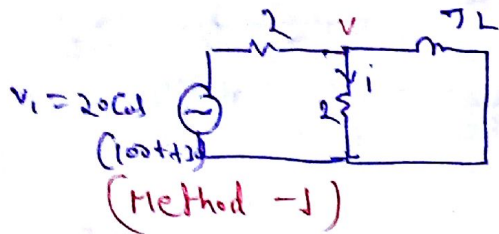 2
V
J2
V₁ = 20cos
2
i
(100t+3)
(Method -1)